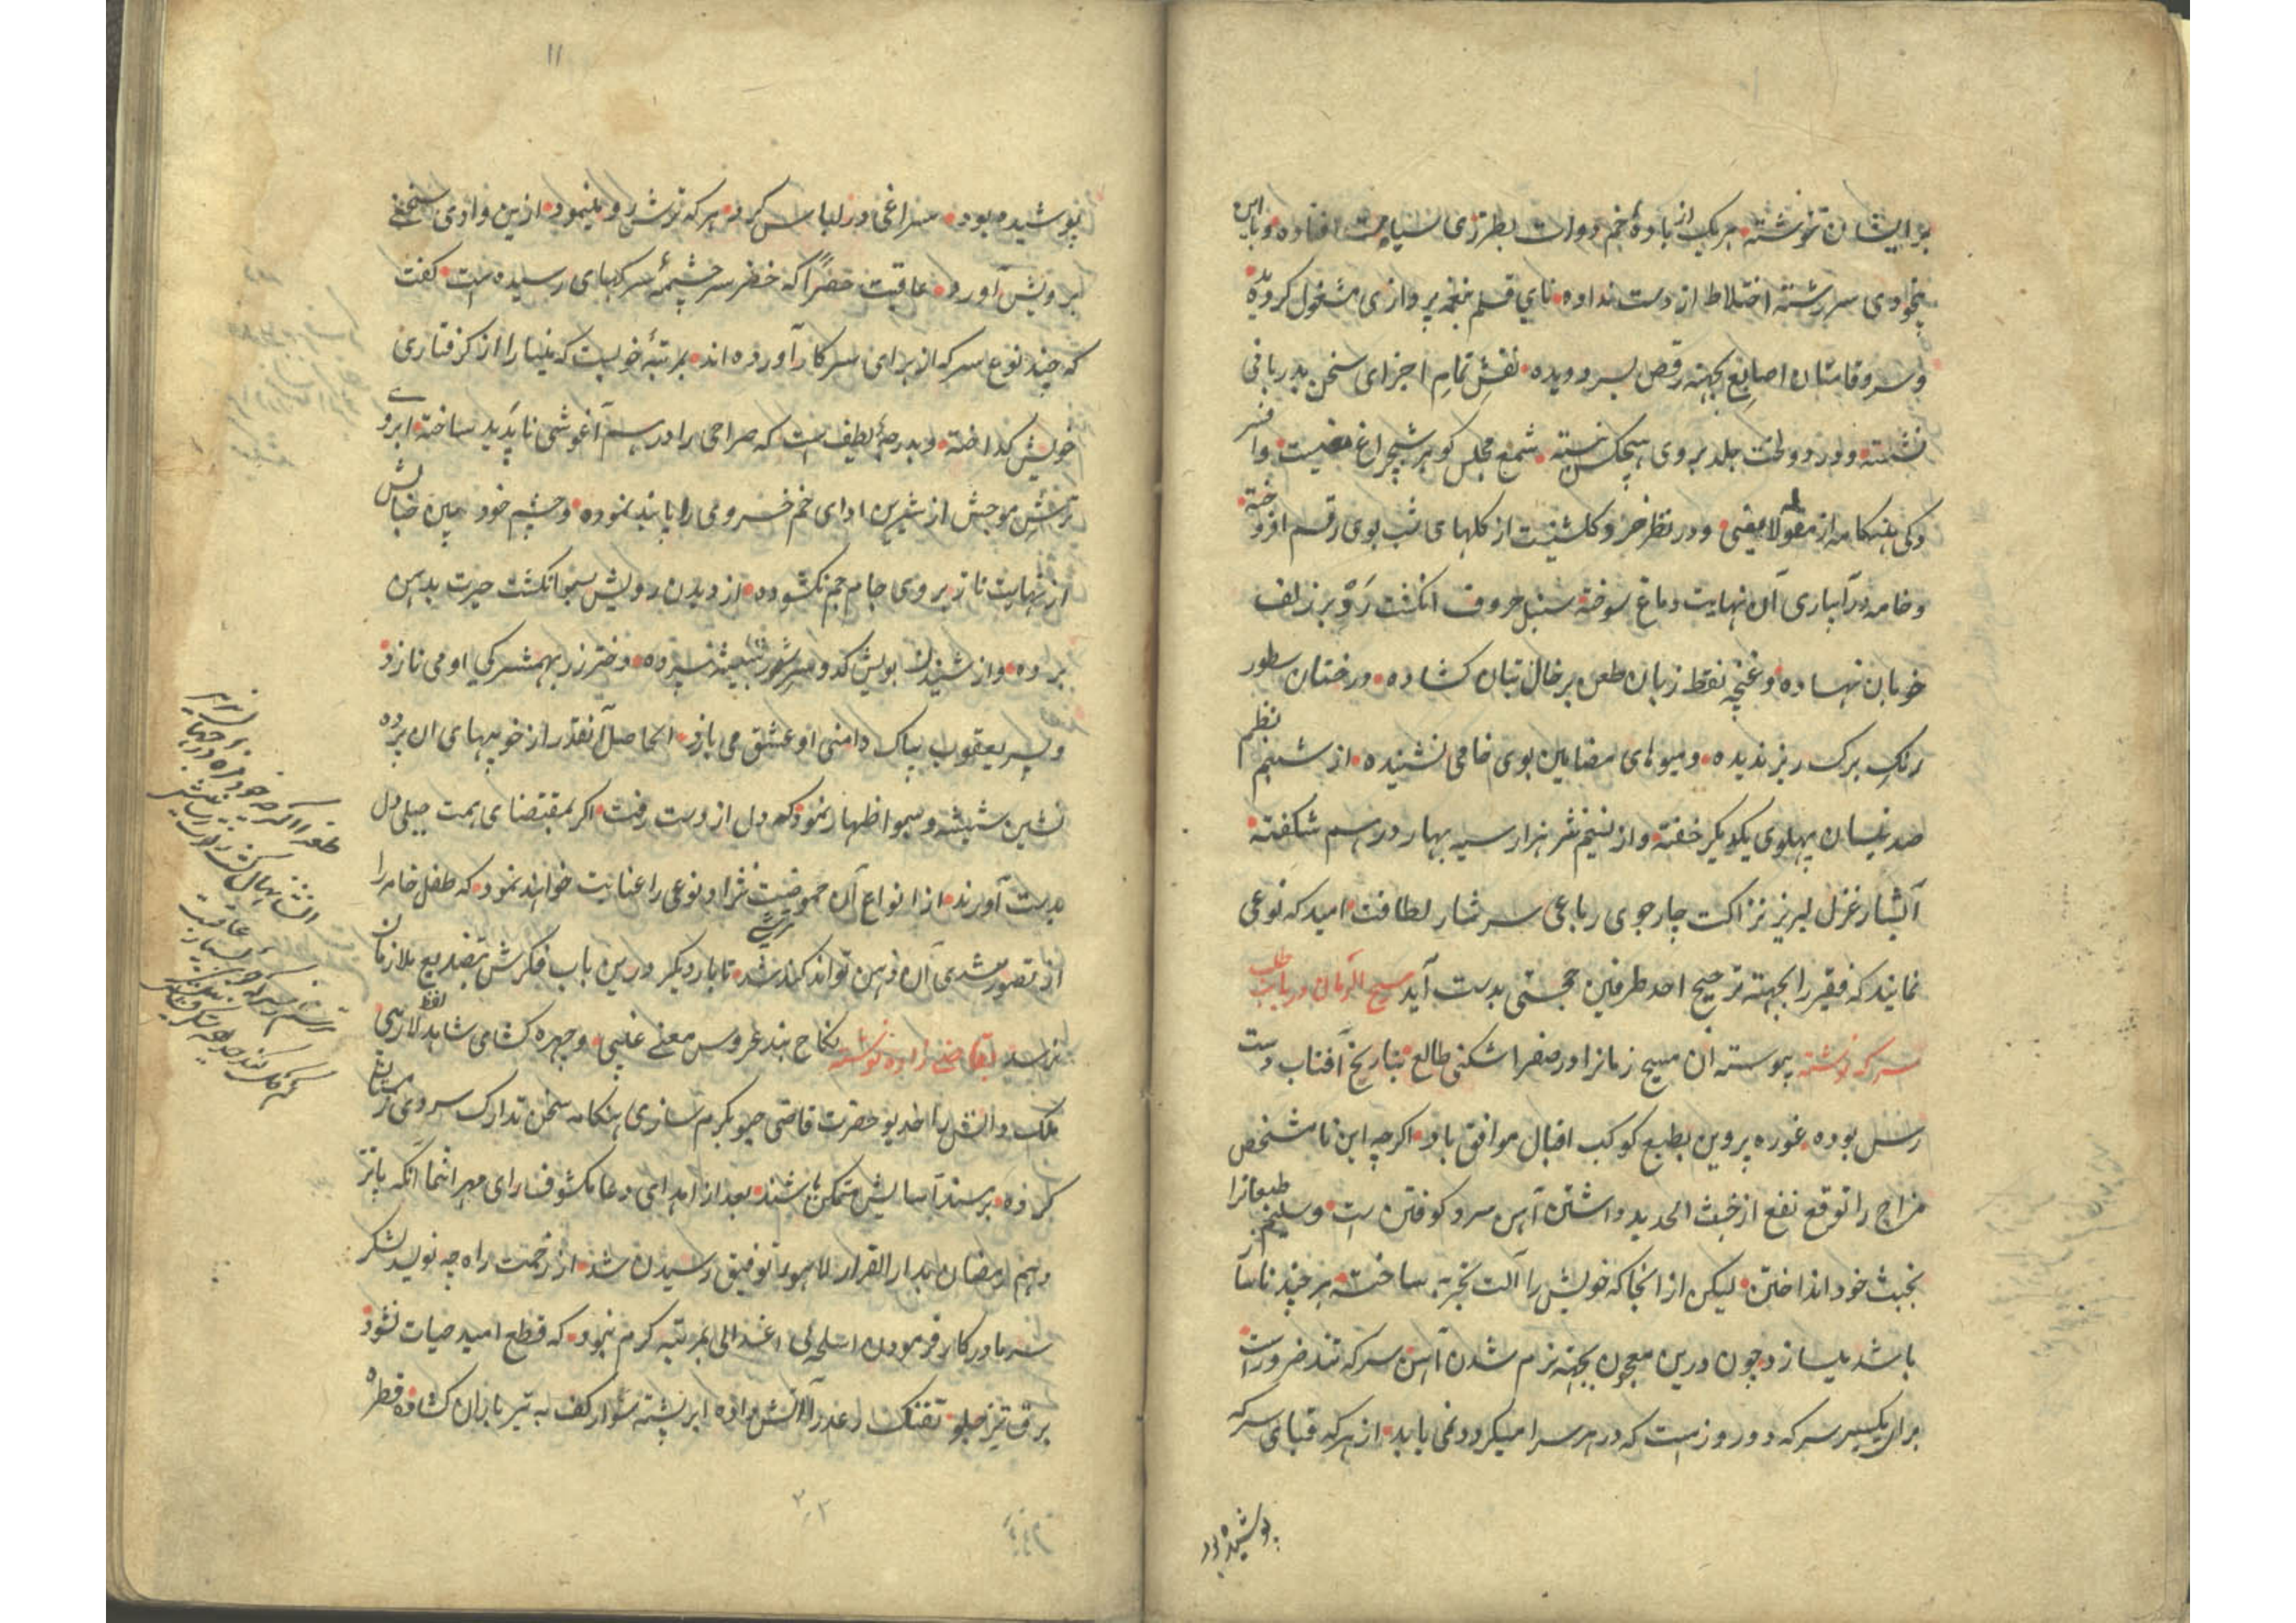 برایشان نوشته هریک از بادهٔ خم دوات بطرزی سیاه مست افتاده و با این
بیخودی سررشته اختلاط از دست نداده نای قلم بنغمه پردازی مشغول کردیده
و سروقامتان اصابع بجهته رقص بسر دویده نقش تمام اجزای سخن بدربانی
نشسته و در دولخت جلد بروی هیچکس نبسته شمع مجلس کوهر شبچراغ
وکی هنکامه از مقوله و در نظر خرد کلشنیست از کلهای شب بوی رقم افروخته
و خامه در آبیاری آن نهایت دماغ سوخته سنبل حروف انکشت رد بر زلف
خوبان نهاده و غنچه نقط زبان طعن بر خال بتان کشاده درختان سطور
رنک برک ریز ندیده و میوهای مضامین بوی خامی نشنیده از شبنم نظم
صد نیسان پهلوی یکدیکر خفته و از نسیم نثر هزار سیه بهار درهم شکفته
آبشار غزل لبریز نزاکت چارجوی رباعی سرشار لطافت امید که نوعی
نمایند که فقیر را بجهته ترجیح احد طرفین حجتی بدست آید مسیح الزمان در باب طلب
سرکه نوشته پیوسته آن مسیح زمانرا در صفرا شکنی طالع بتاریخ آفتاب دست
رس بوده غوره پروین بطبع کوکب اقبال موافق باد اکرچه این نامشخص
مزاج را توقع نفع از خبث الحدید داشتن آهن سرد کوفتن است و سلیم طبعانرا
بخبث خود انداختن لیکن از انجا که خویش را آلت تجربه ساخته هرچند ناساز
باشد میسازد چون درین معجون بجهته نرم شدن آهن سرکه تند ضرور است
برای یکسیر سرکه دو روز است که در هر سرا میکردد نمی یابد از هرکه قبای سرکه
پوشیده بود
۱۱
پوشیده بود سراغی در لباس کرد هرکه ترش رو مینمود ازین وادی سخنے
برویش آورد عاقبت خضرآکه خضر سرچشمهٔ سرکهای رسیده است کفت
که چند نوع سرکه از برای سرکار آورده اند بمرتبهٔ خوبست که مینا را از کرفتاری
خویش کداخته و بدرجهٔ لطیف است که صراحی را در هم آغوشی ناپدید ساخته ابروے
ترش موجش از شیرین ادای خم خسروی را پابند نموده و چشم خود بین حبابش
از نهایت ناز بروی جام جم نکشوده از دیدن رویش سبو انکشت حیرت بدهن
برده و از شنیدن بویش کدو سررشته شیشه سپرده دختر رز بهمشیرکی او می نازد
و پیر یعقوب بپاک دامنی او عشق می بازد الحاصل آنقدر از خوبیهای ان پرده
نشین شیشه و سبو اظهار نمود که دل از دست رفت اکر بمقتضای همت میلی دل
بدست آورند از انواع آن حموضیت نژاد نوعی را عنایت خواهند نمود که طفل خامه را
از تصور تندی آن دهن تواند کند شد تا بار دیکر درین باب فکرش بتصدیع ملازمان
نرسد بقاضی زاده نوشته نکاح بند عروس معنے غیبی و چهره کشای شاهد لفظ لاریبی
ملک دانش را خدیو حضرت قاضی جیو بکرم سازی هنکامه سخن تدارک سردی زمستان
کرده بر مسند آسایش متمکن باشند بعد از اهدای دعا مکشوف رای مهر انتما آنکه پانز
دهم رمضان بدار القرار لاهور توفیق رسیدن شد از زحمت راه چه نویسد لشکر
سرما در کار فرمودن اسلحهٔ اعتدالی بمرتبه کرم نبود که قطع امید حیات نشود
برق تیز جلو تفنک رعد را آتش داده ابر پشته سوار کف به تیر باران کشاده قطره